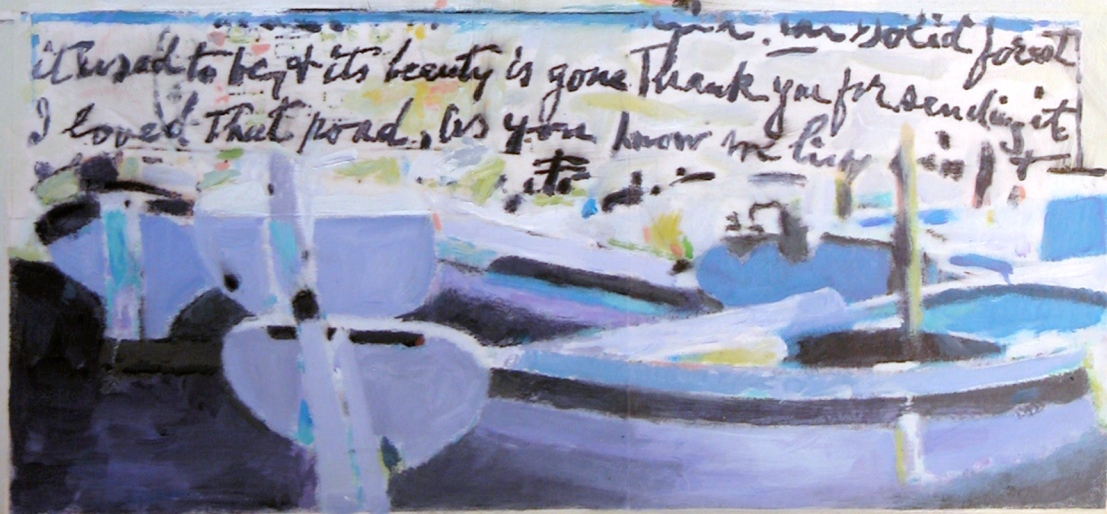 solid forest
it used to be, & its beauty is gone Thank you for sending it
I loved that pond, as you know we live in